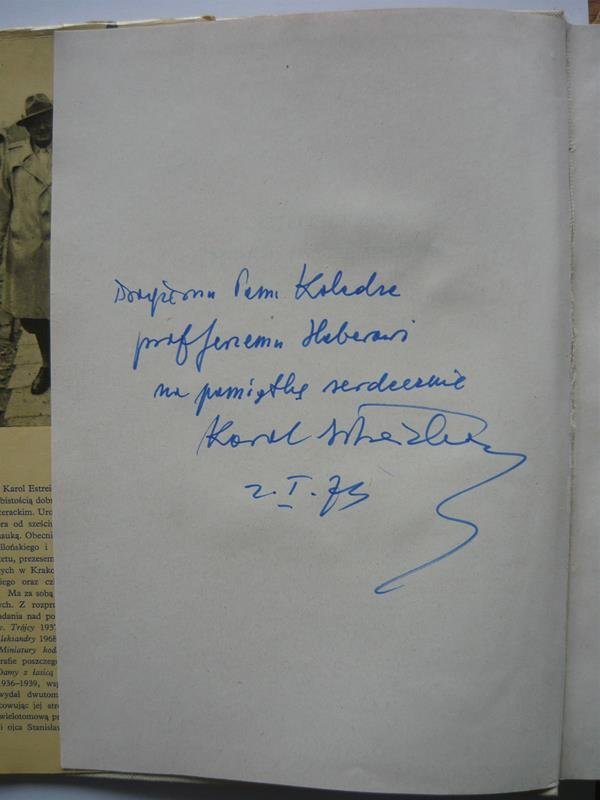 Pani Koledze
prof Jerzemu Haberowi
na pamiątkę serdecznie
Karol Estreicher
2.I.73
Karol Estrei
bistością dob
terackim. Uro
ora od sześciu
nauką. Obecni
llońskiego i
tetu, prezesem
nych w Krako
iego oraz czł
Ma za sobą
ych. Z rozpr
adania nad po
w. Trójcy 193
leksandry 1968
Miniatury kod
rafie poszczegó
Damy z łasicą
1936–1939, wsp
wydał dwutom
cowując jej stro
wielotomową pr
i ojca Stanisław